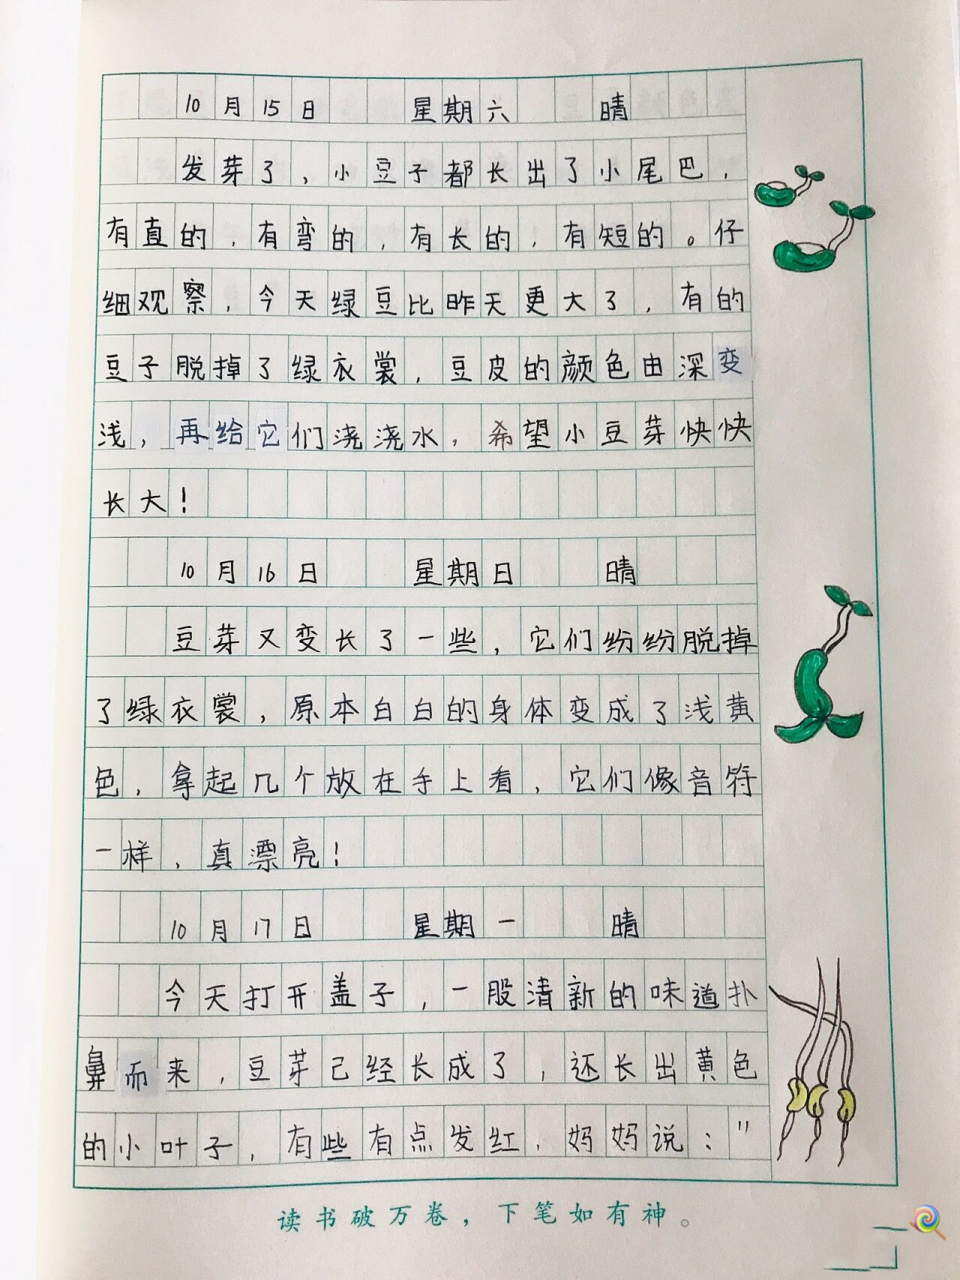 10月15日 星期六 晴
发芽了，小豆子都长出了小尾巴，
有直的，有弯的，有长的，有短的。仔
细观察，今天绿豆比昨天更大了，有的
豆子脱掉了绿衣裳，豆皮的颜色由深变
浅，再给它们浇浇水，希望小豆芽快快
长大！
10月16日 星期日 晴
豆芽又变长了一些，它们纷纷脱掉
了绿衣裳，原本白白的身体变成了浅黄
色，拿起几个放在手上看，它们像音符
一样，真漂亮！
10月17日 星期一 晴
今天打开盖子，一股清新的味道扑
鼻而来，豆芽已经长成了，还长出黄色
的小叶子，有些有点发红，妈妈说："
读书破万卷，下笔如有神。